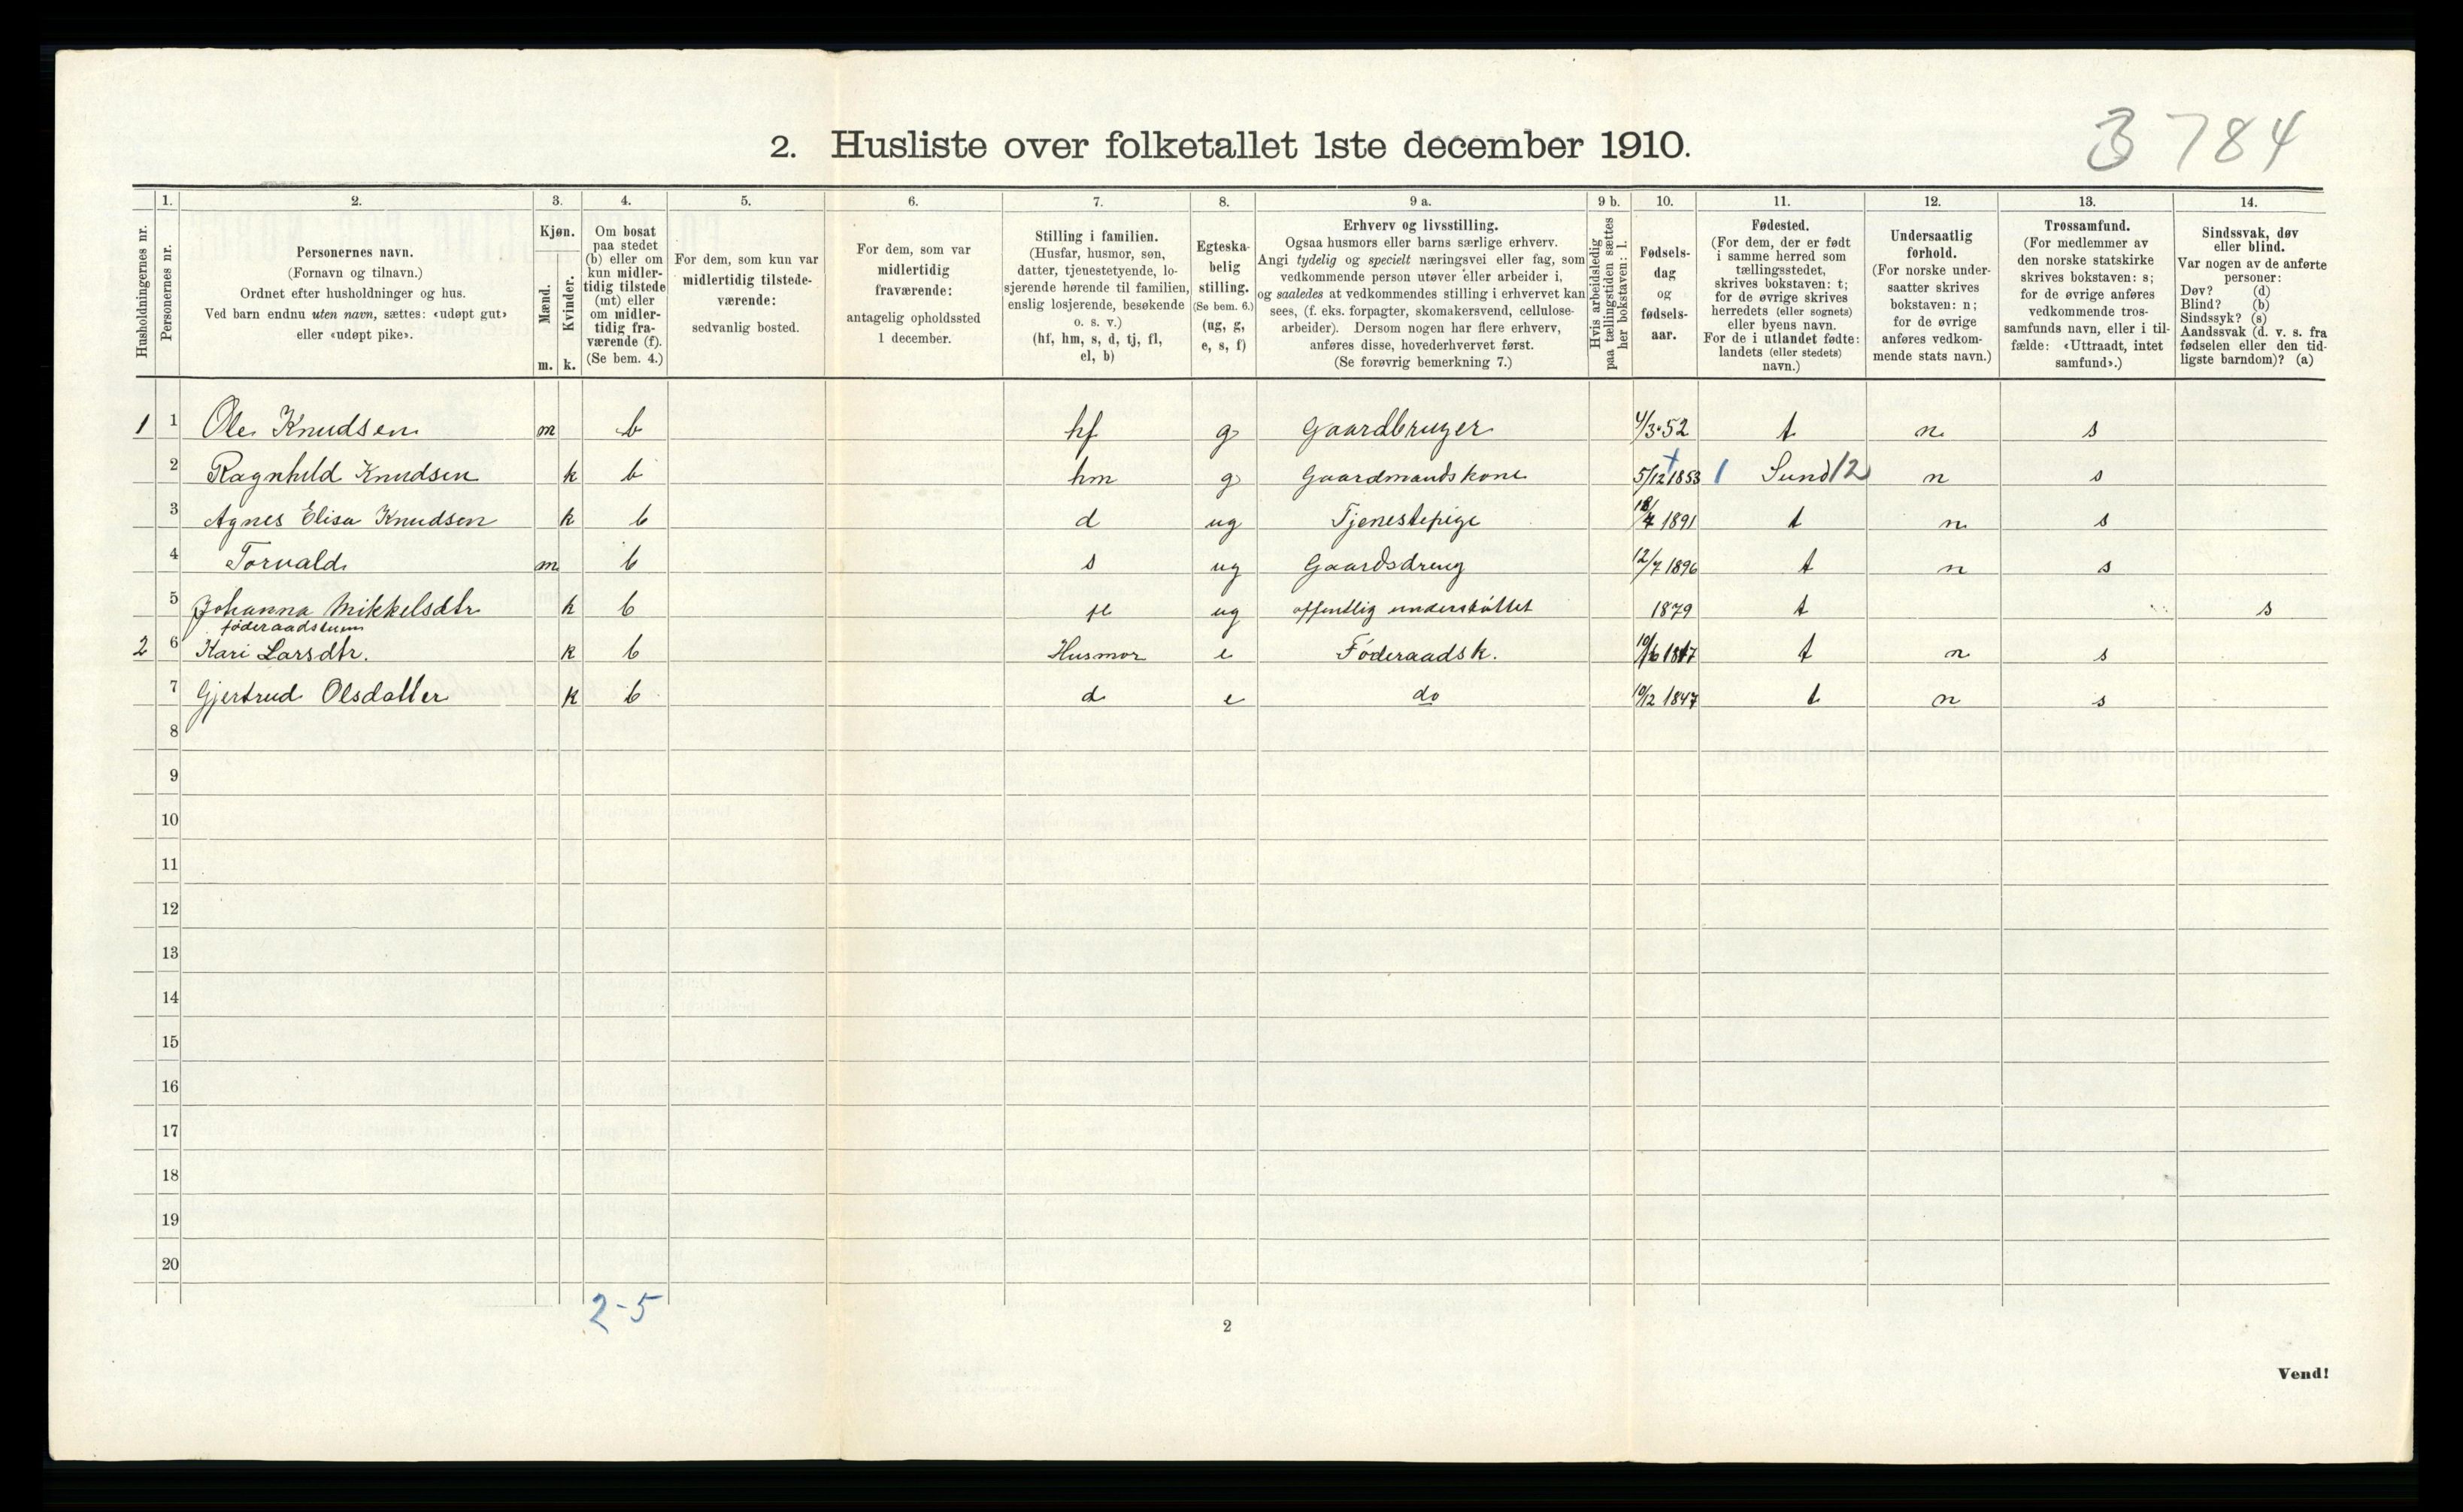 3 784
2. Husliste over folketallet 1ste december 1910.
Husholdningernes nr.
1.
Personernes nr.
2.
Personernes navn.
(Fornavn og tilnavn.)
Ordnet efter husholdninger og hus.
Ved barn endnu uten navn, sættes: «udøpt gut»
eller «udøpt pike».
3.
Kjøn.
Mænd. Kvinder.
m. k.
4.
Om bosat
paa stedet
(b) eller om
kun midler-
tidig tilstede
(mt) eller
om midler-
tidig fra-
værende (f).
(Se bem. 4.)
5.
For dem, som kun var
midlertidig tilstede-
værende:
sedvanlig bosted.
6.
For dem, som var
midlertidig
fraværende:
antagelig opholdssted
1 december.
7.
Stilling i familien.
(Husfar, husmor, søn,
datter, tjenestetyende, lo-
sjerende hørende til familien,
enslig losjerende, besøkende
o. s. v.)
(hf, hm, s, d, tj, fl,
el, b)
8.
Egteska-
belig
stilling.
(Se bem. 6.)
(ug, g,
e, s, f)
9 a.
Erhverv og livsstilling.
Ogsaa husmors eller barns særlige erhverv.
Angi tydelig og specielt næringsvei eller fag, som
vedkommende person utøver eller arbeider i,
og saaledes at vedkommendes stilling i erhvervet kan
sees, (f. eks. forpagter, skomakersvend, cellulose-
arbeider). Dersom nogen har flere erhverv,
anføres disse, hovederhvervet først.
(Se forøvrig bemerkning 7.)
9 b.
Hvis arbeidsledig
paa tællingstiden sættes
her bokstaven: l.
10.
Fødsels-
dag
og
fødsels-
aar.
11.
Fødested.
(For dem, der er født
i samme herred som
tællingsstedet,
skrives bokstaven: t;
for de øvrige skrives
herredets (eller sognets)
eller byens navn.
For de i utlandet fødte:
landets (eller stedets)
navn.)
12.
Undersaatlig
forhold.
(For norske under-
saatter skrives
bokstaven: n;
for de øvrige
anføres vedkom-
mende stats navn.)
13.
Trossamfund.
(For medlemmer av
den norske statskirke
skrives bokstaven: s;
for de øvrige anføres
vedkommende tros-
samfunds navn, eller i til-
fælde: «Uttraadt, intet
samfund».)
14.
Sindssvak, døv
eller blind.
Var nogen av de anførte
personer:
Døv? (d)
Blind? (b)
Sindssyk? (s)
Aandssvak (d. v. s. fra
fødselen eller den tid-
ligste barndom)? (a)
1 1 Ole Knudsen m b hf g Gaardbruger 4/3 52 t n s
2 Ragnhild Knudsen k b hm g Gaardmandskone 5/12 1853 1 Sund 12 n s
3 Agnes Elisa Knudsen k b d ug Tjenestepige 1891 t n s
4 Torvald m b s ug Gaardsdreng 12/7 1896 t n s
5 Johanna Mikkelsdtr k b fl ug offentlig understøttet 1879 t s
2 6 Kari Larsdtr. k b Husmor e Føderaadsk. t n s
7 Gjertrud Olsdatter k b d e do 10/12 1847 t n s
8
9
10
11
12
13
14
15
16
17
18
19
20
2-5
2
Vend!